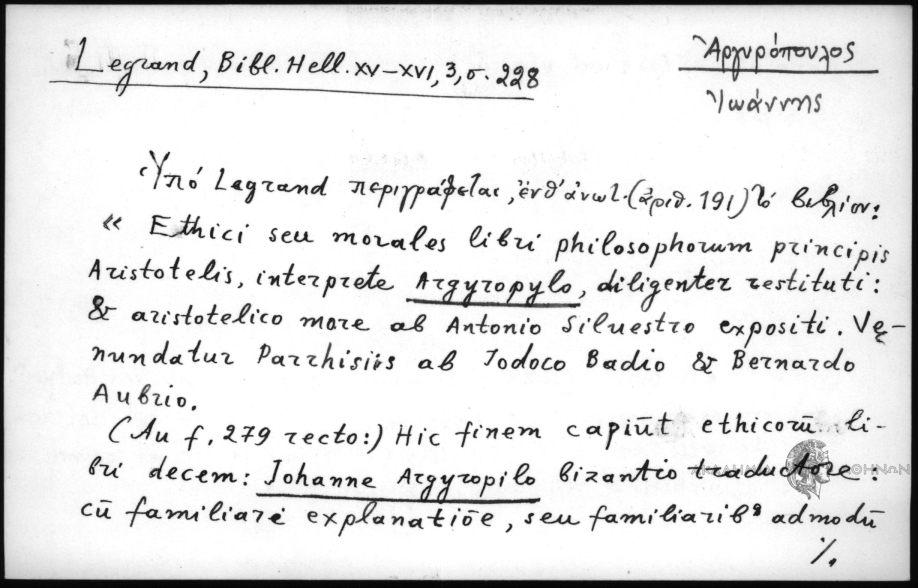 Legrand, Bibl. Hell. XV–XVI, 3, σ. 228
Ἀργυρόπουλος
Ἰωάννης
Ὑπό Legrand περιγράφεται, ἔνθ' ἀνωτ. (ἀριθ. 191) τό βιβλίον:
« Ethici seu morales libri philosophorum principis
Aristotelis, interprete Argyropylo, diligenter restituti:
& aristotelico more ab Antonio Siluestro expositi. Vę-
nundatur Parrhisiis ab Iodoco Badio & Bernardo
Aubrio.
(Au f. 279 recto:) Hic finem capiūt ethicorū li-
bri decem: Iohanne Argyropilo bizantio traductore:
cū familiari explanatiōe, seu familiarib⁹ admodū
%.